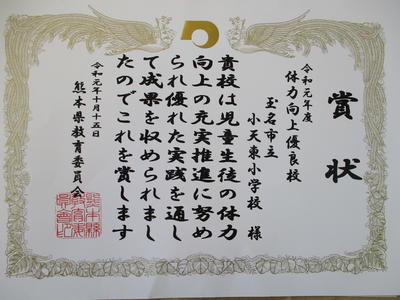 賞状
令和元年度
体力向上優良校
玉名市立
小天東小学校 様
貴校は児童生徒の体力
向上の充実推進に努め
られ優れた実践を通し
て成果を収められまし
たのでこれを賞します
令和元年十月十五日
熊本県教育委員会